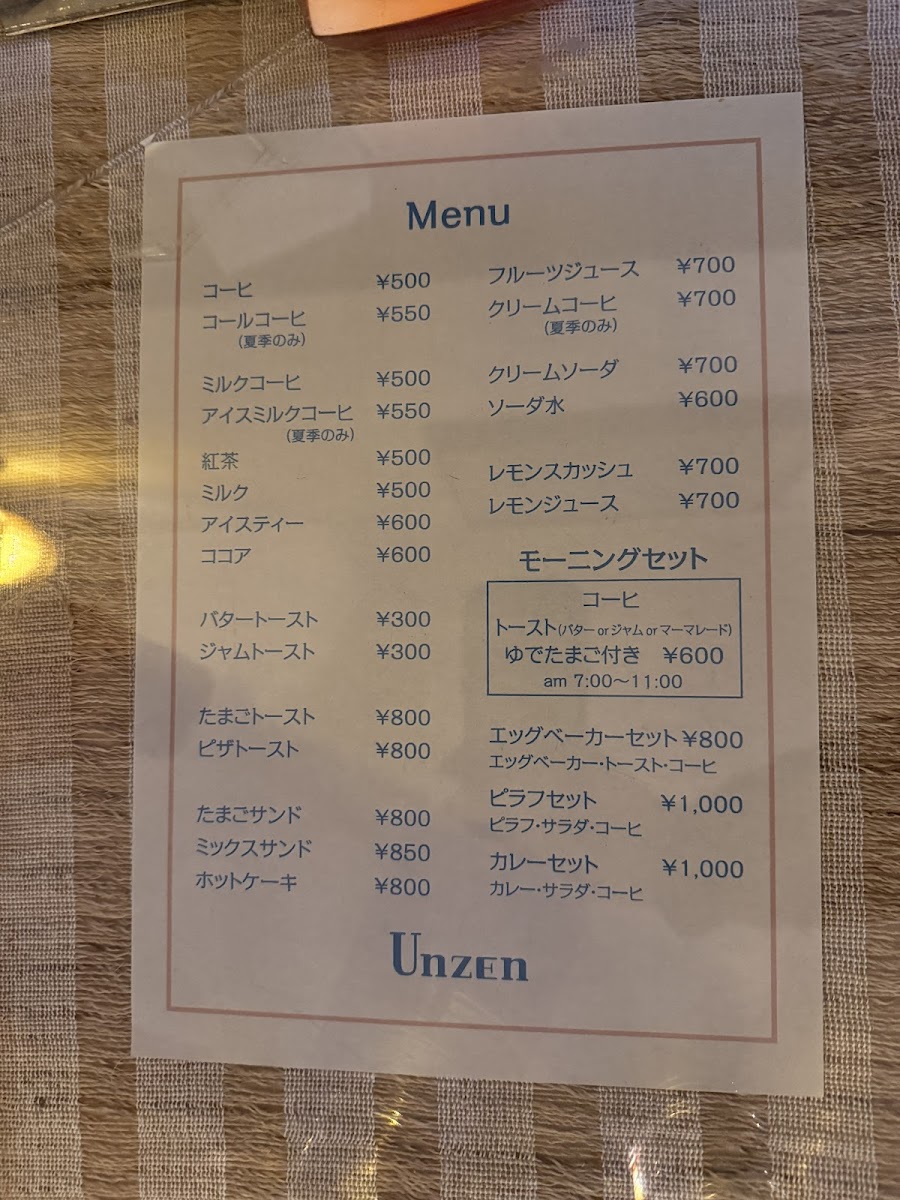 Menu
コーヒ ¥500
コールコーヒ ¥550
(夏季のみ)
ミルクコーヒ ¥500
アイスミルクコーヒ ¥550
(夏季のみ)
紅茶 ¥500
ミルク ¥500
アイスティー ¥600
ココア ¥600
バタートースト ¥300
ジャムトースト ¥300
たまごトースト ¥800
ピザトースト ¥800
たまごサンド ¥800
ミックスサンド ¥850
ホットケーキ ¥800
フルーツジュース ¥700
クリームコーヒ ¥700
(夏季のみ)
クリームソーダ ¥700
ソーダ水 ¥600
レモンスカッシュ ¥700
レモンジュース ¥700
モーニングセット
コーヒ
トースト(バター or ジャム or マーマレード)
ゆでたまご付き ¥600
am 7:00～11:00
エッグベーカーセット ¥800
エッグベーカー・トースト・コーヒ
ピラフセット ¥1,000
ピラフ・サラダ・コーヒ
カレーセット ¥1,000
カレー・サラダ・コーヒ
Unzen